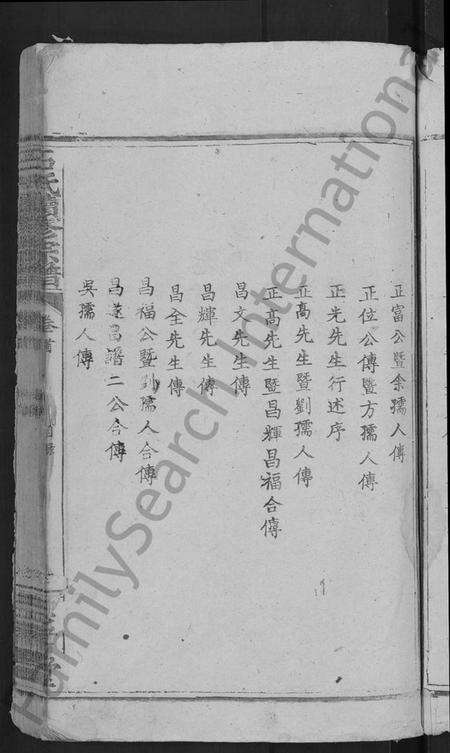 正富公暨余孺人傳
正位公傳暨方孺人傳
正光先生行述序
正高先生暨劉孺人傳
正高先生暨昌輝昌福合傳
昌文先生傳
昌輝先生傳
昌全先生傳
昌福公暨劉孺人合傳
昌達昌譜二公合傳
吳孺人傳
石氏續修宗譜
卷首
FamilySearch International